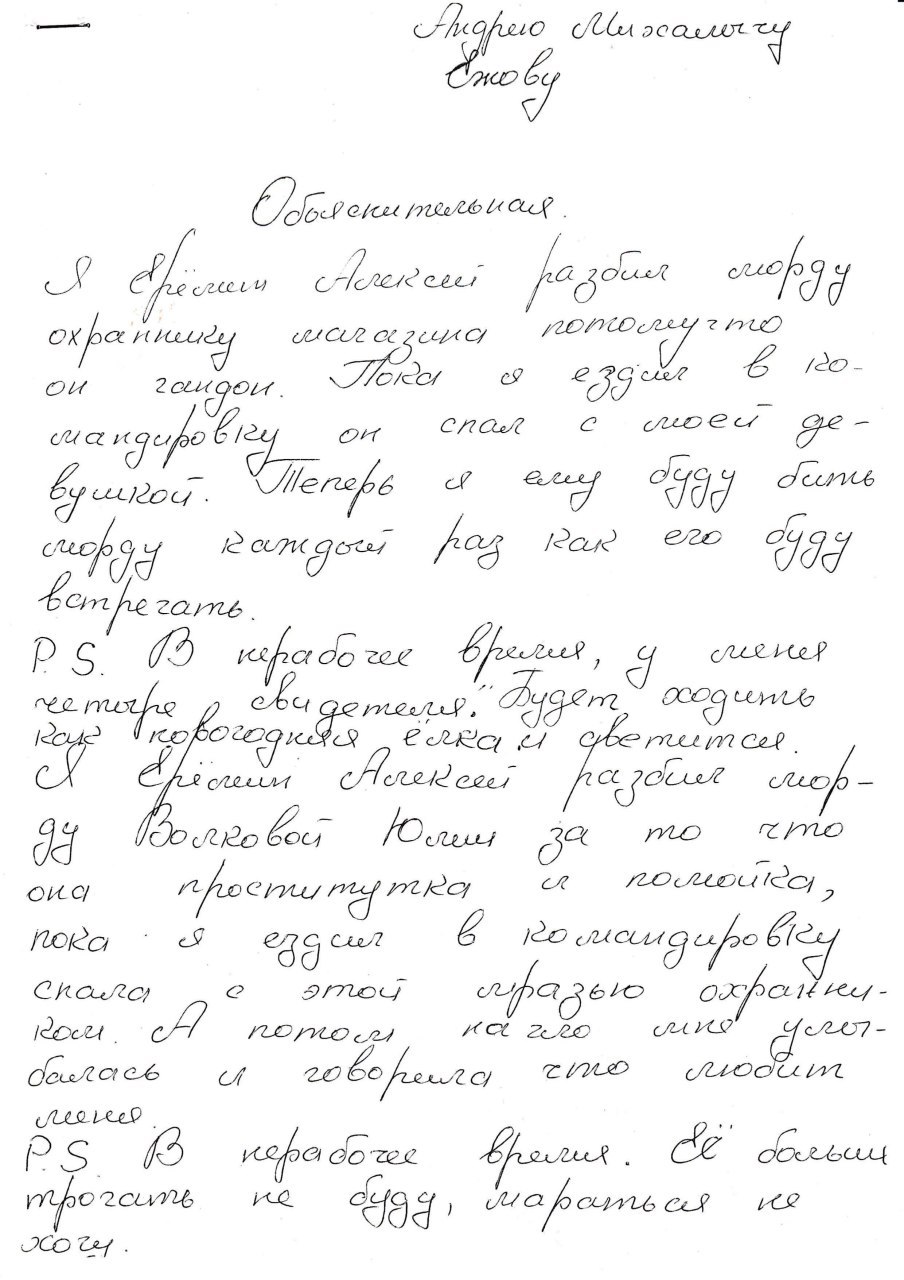 Андрею Михалычу
Ежову
Обьяснительная.
Я Ерёмин Алексей разбил морду
охраннику магазина потомучто
он гандон. Пока я ездил в ко-
мандировку он спал с моей де-
вушкой. Теперь я ему буду бить
морду каждый раз как его буду
встречать.
P.S. В нерабочее время, у меня
четыре свидетеля. Будет ходить
как новогодняя ёлка и светится.
Я Ерёмин Алексей разбил мор-
ду Волковой Юлии за то что
она проститутка и помойка,
пока я ездил в командировку
спала с этой мразью охранни-
ком. А потом нагло мне улы-
балась и говорила что любит
меня.
P.S. В нерабочее время. Её больш
трогать не буду, мараться не
хочу.